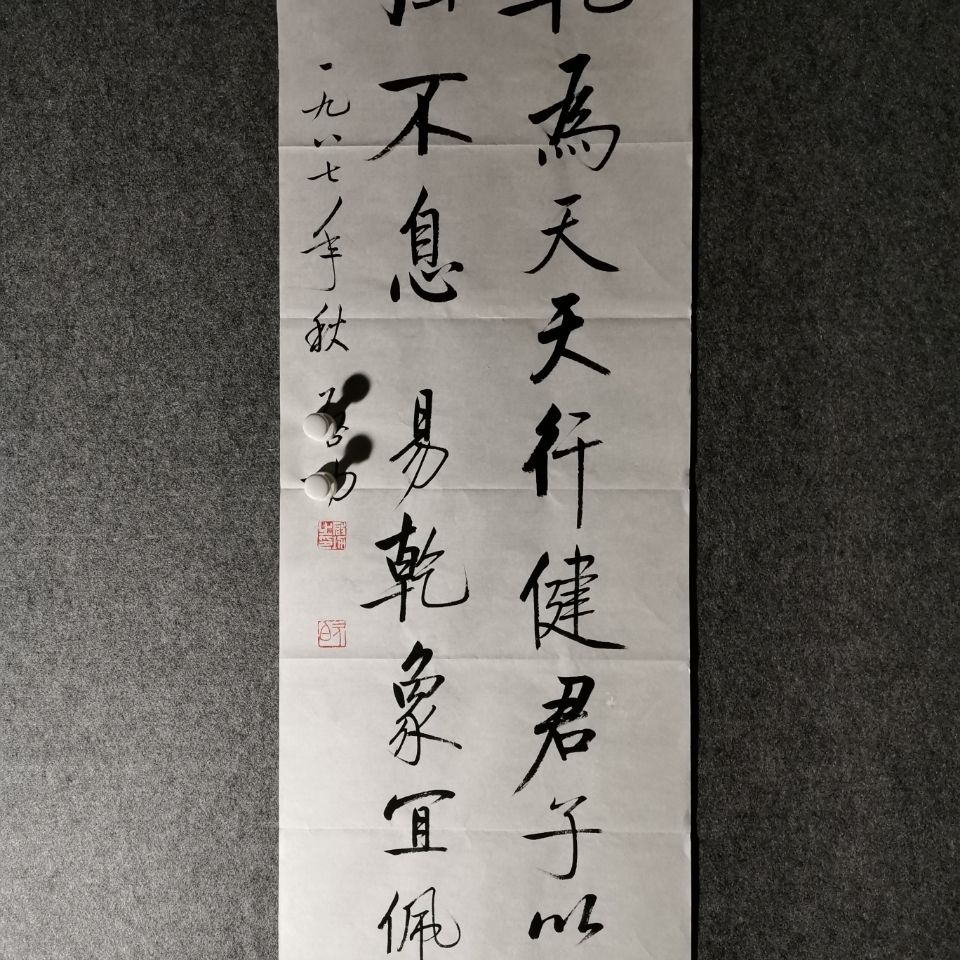 為天天行健君子以
不息 易乾象宜佩
一九八七年秋 啓功
元白